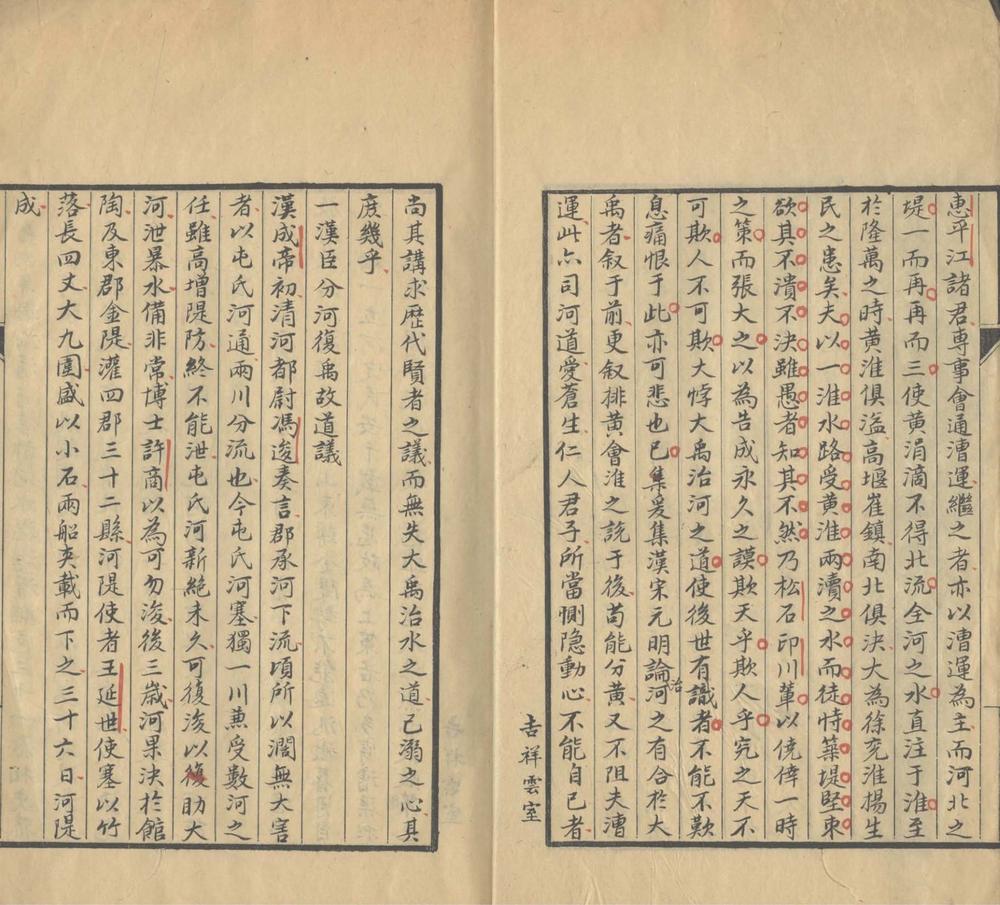 惠平江諸君專事會通漕運繼之者亦以漕運為主而河北之
堤一而再再而三使黃涓滴不得北流全河之水直注于淮至
於隆萬之時黃淮俱溢高堰崔鎮南北俱決大為徐兖淮揚生
民之患矣夫以一淮水路受黃淮兩瀆之水而徒恃築堤堅束
欲其不潰不決雖愚者知其不然乃松石印川輩以僥倖一時
之策而張大之以為告成永久之謨欺天乎欺人乎究之天不
可欺人不可欺大悖大禹治河之道使後世有識者不能不歎
息痛恨于此亦可悲也已集爰集漢宋元明論治河之有合於大
禹者叙于前更叙排黃會淮之說于後苟能分黃又不阻夫漕
運此亦司河道愛蒼生仁人君子所當惻隐動心不能自已者
吉祥雲室
尚其講求歴代賢者之議而無失大禹治水之道己溺之心其
庶幾乎
一漢臣分河復禹故道議
漢成帝初清河都尉馮逡奏言郡承河下流頃所以濶無大害
者以屯氏河通兩川分流也今屯氏河塞獨一川兼受數河之
任雖高增隄防終不能泄屯氏河新絕未久可復浚以復助大
河泄暴水備非常博士許商以為可勿浚後三歲河果決於館
陶及東郡金隄灌四郡三十二縣河隄使者王延世使塞以竹
落長四丈大九圍盛以小石兩船夾載而下之三十六日河隄
成